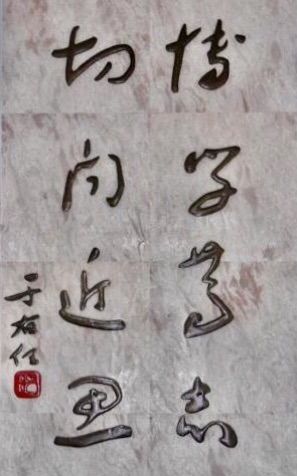 博学笃志
切问近思
于右任